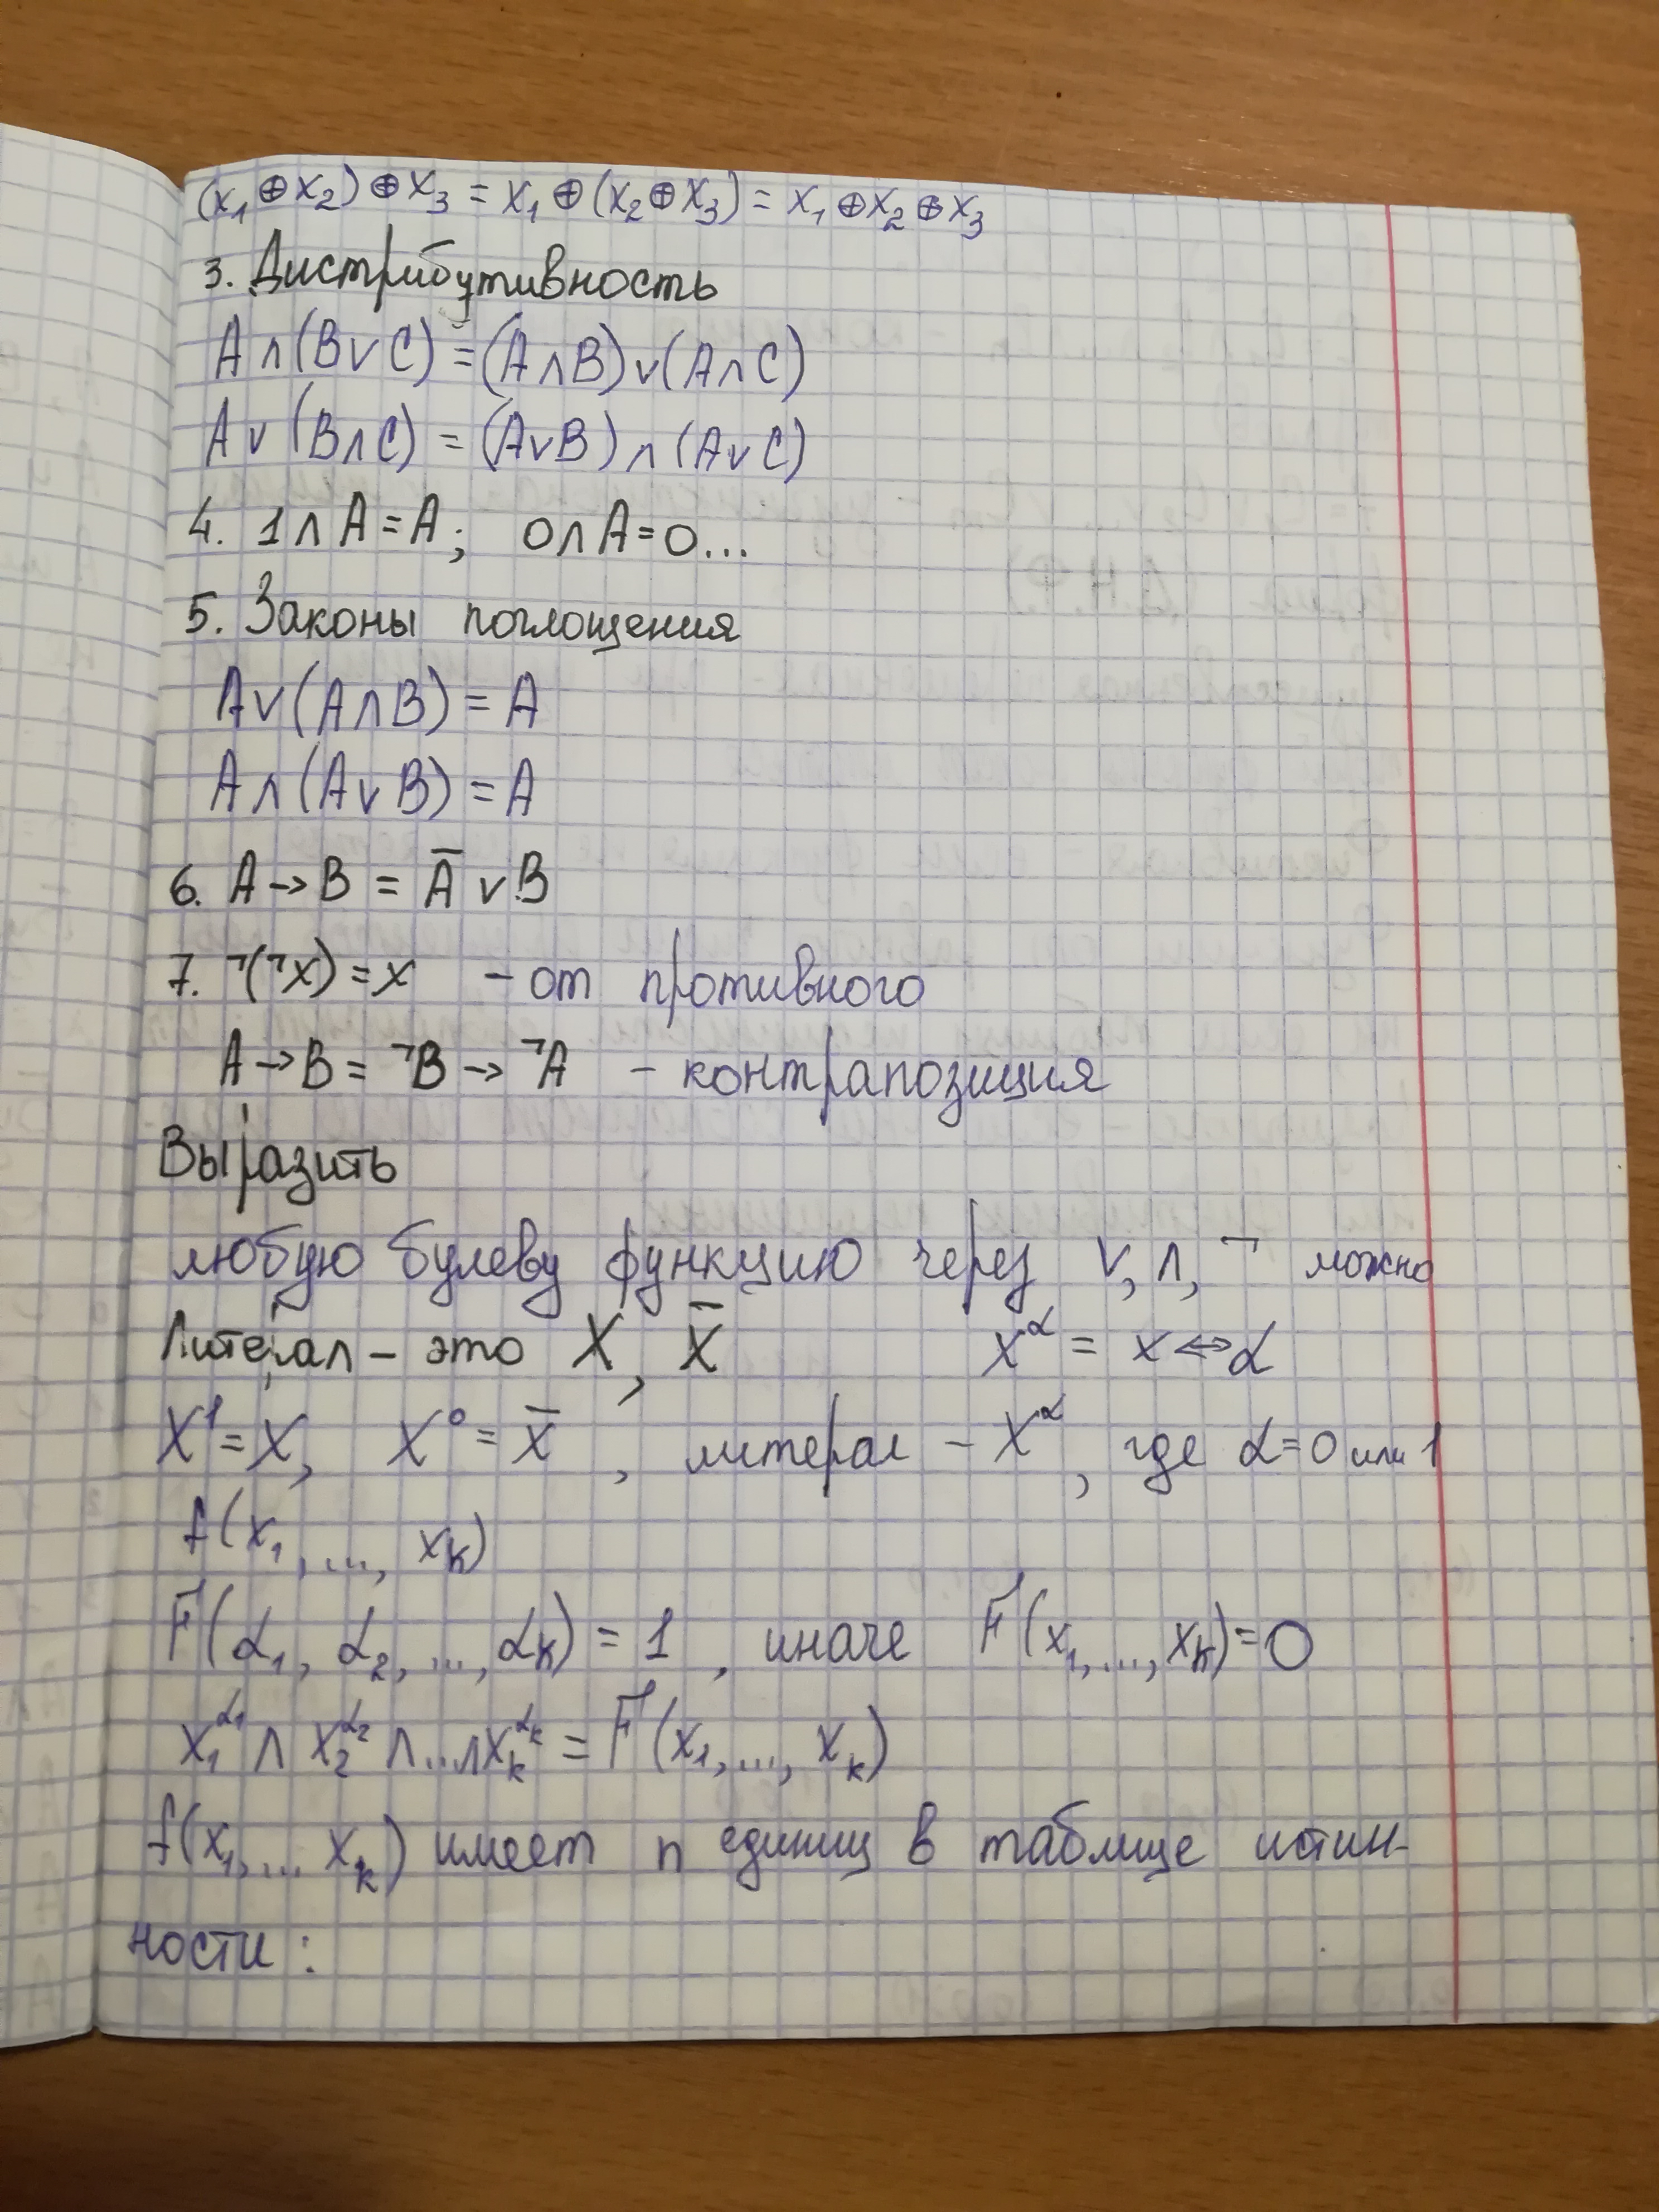 (x₁ ⊕ x₂) ⊕ x₃ = x₁ ⊕ (x₂ ⊕ x₃) = x₁ ⊕ x₂ ⊕ x₃
3. Дистрибутивность
A ∧ (B ∨ C) = (A ∧ B) ∨ (A ∧ C)
A ∨ (B ∧ C) = (A ∨ B) ∧ (A ∨ C)
4. 1 ∧ A = A; 0 ∧ A = 0...
5. Законы поглощения
A ∨ (A ∧ B) = A
A ∧ (A ∨ B) = A
6. A → B = A̅ ∨ B
7. ¬(¬x) = x – от противного
A → B = ¬B → ¬A – контрапозиция
Выразить
любую булеву функцию через ∨, ∧, ¬ можно
Литерал – это X, X̅ x^α = x ⇔ α
X¹ = X, X⁰ = x̅, литерал – X^α, где α = 0 или 1
f(x₁, ..., xₖ)
F(α₁, α₂, ..., αₖ) = 1, иначе F(x₁, ..., xₖ) = 0
x₁^α₁ ∧ x₂^α₂ ∧ ... ∧ xₖ^αₖ = F(x₁, ..., xₖ)
f(x₁, ... xₖ) имеет n единиц в таблице истин-
ности :